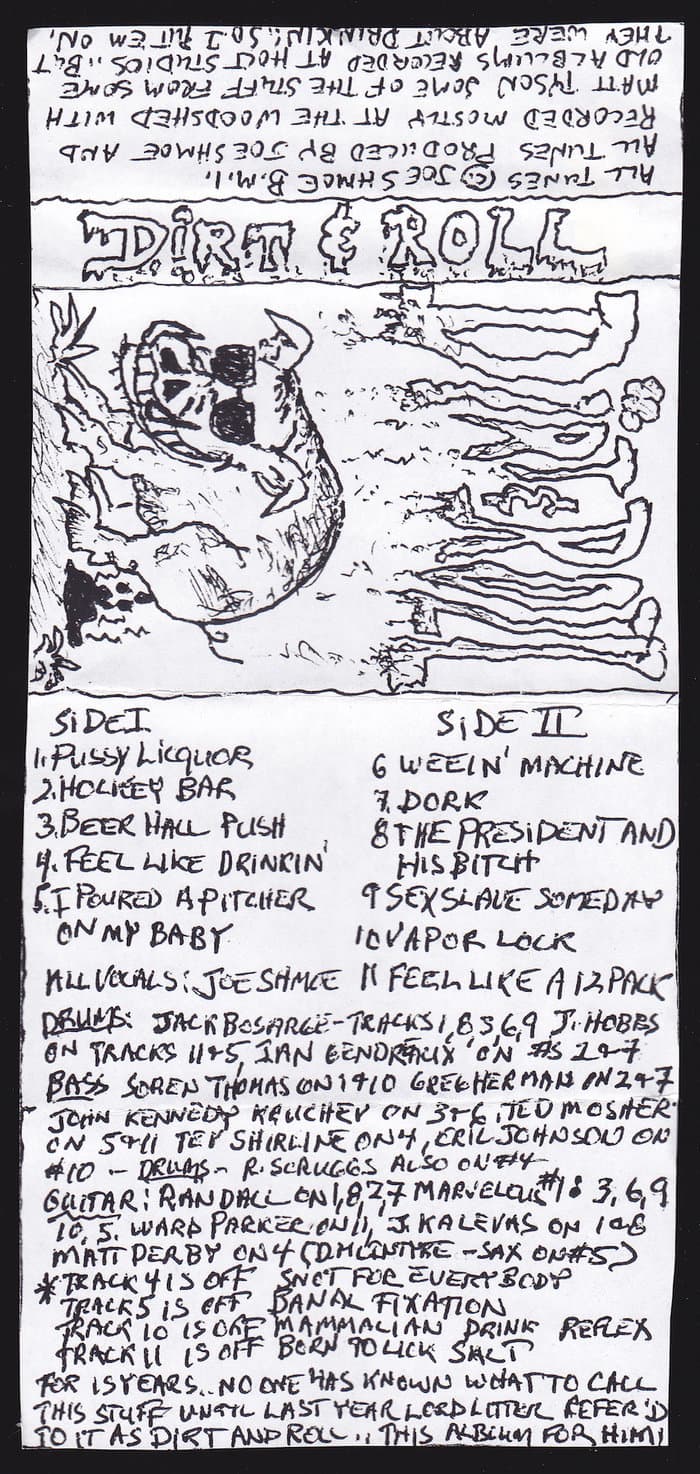 THEY WERE ABOUT DRINKIN'.. SO I PUT EM ON.
OLD ALBUMS RECORDED AT HOLT STUDIOS.. BUT
MATT TYSON SOME OF THE STUFF FROM SOME
RECORDED MOSTLY AT THE WOODSHED WITH
ALL TUNES PRODUCED BY JOE SHMOE AND
ALL TUNES © JOE SHMOE B.M.I.
DIRT & ROLL
SIDE I
1. PUSSY LICQUOR
2. HOCKEY BAR
3. BEER HALL PUSH
4. FEEL LIKE DRINKIN'
5. I POURED A PITCHER
ON MY BABY
SIDE II
6 WEEIN' MACHINE
7. DORK
8 THE PRESIDENT AND
HIS BITCH
9 SEX SLAVE SOMEDAY
10 VAPOR LOCK
11 FEEL LIKE A 12 PACK
ALL VOCALS: JOE SHMOE
DRUMS: JACK BOSARGE - TRACKS 1, 8 3, 6, 9 J. HOBBS
ON TRACKS 11 & 5, IAN GENDREAUX ON #S 2 & 7
BASS SOREN THOMAS ON 1 & 10 GREG HERMAN ON 2 & 7
JOHN KENNEDY KRUCHEY ON 3 & 6, TED MOSHER
ON 5 & 11 TEY SHIRLINE ON 4, ERIC JOHNSON ON
#10 - DRUMS - R. SCRUGGS ALSO ON #4
GUITAR: RANDALL ON 1, 8, 2, 7 MARVELOUS #18 3, 6, 9
10, 5. WARD PARKER ON 11, J. KALEVAS ON 1 & 8
MATT DERBY ON 4 (D. MCINTYRE - SAX ON #5)
* TRACK 4 IS OFF SNOT FOR EVERYBODY
TRACK 5 IS OFF BANAL FIXATION
TRACK 10 IS OFF MAMMALIAN DRINK REFLEX
TRACK 11 IS OFF BORN TO LICK SALT
FOR 15 YEARS.. NO ONE HAS KNOWN WHAT TO CALL
THIS STUFF UNTIL LAST YEAR LORD LITTER REFER'D
TO IT AS DIRT AND ROLL.. THIS ALBUM FOR HIM!